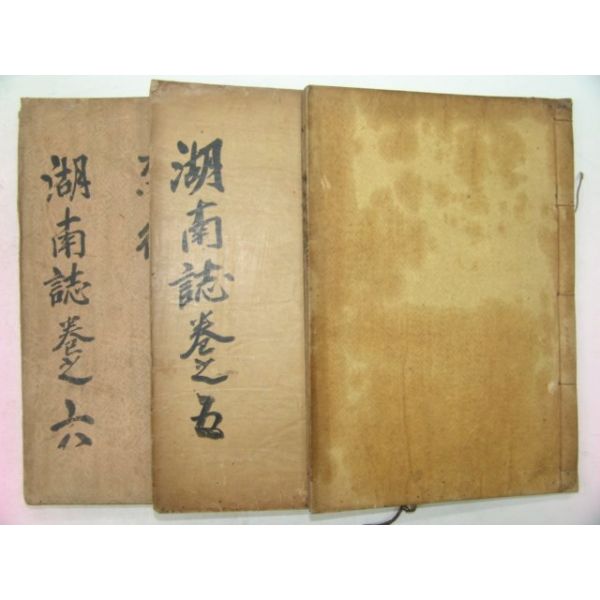 湖南誌卷之六
湖南誌卷之五